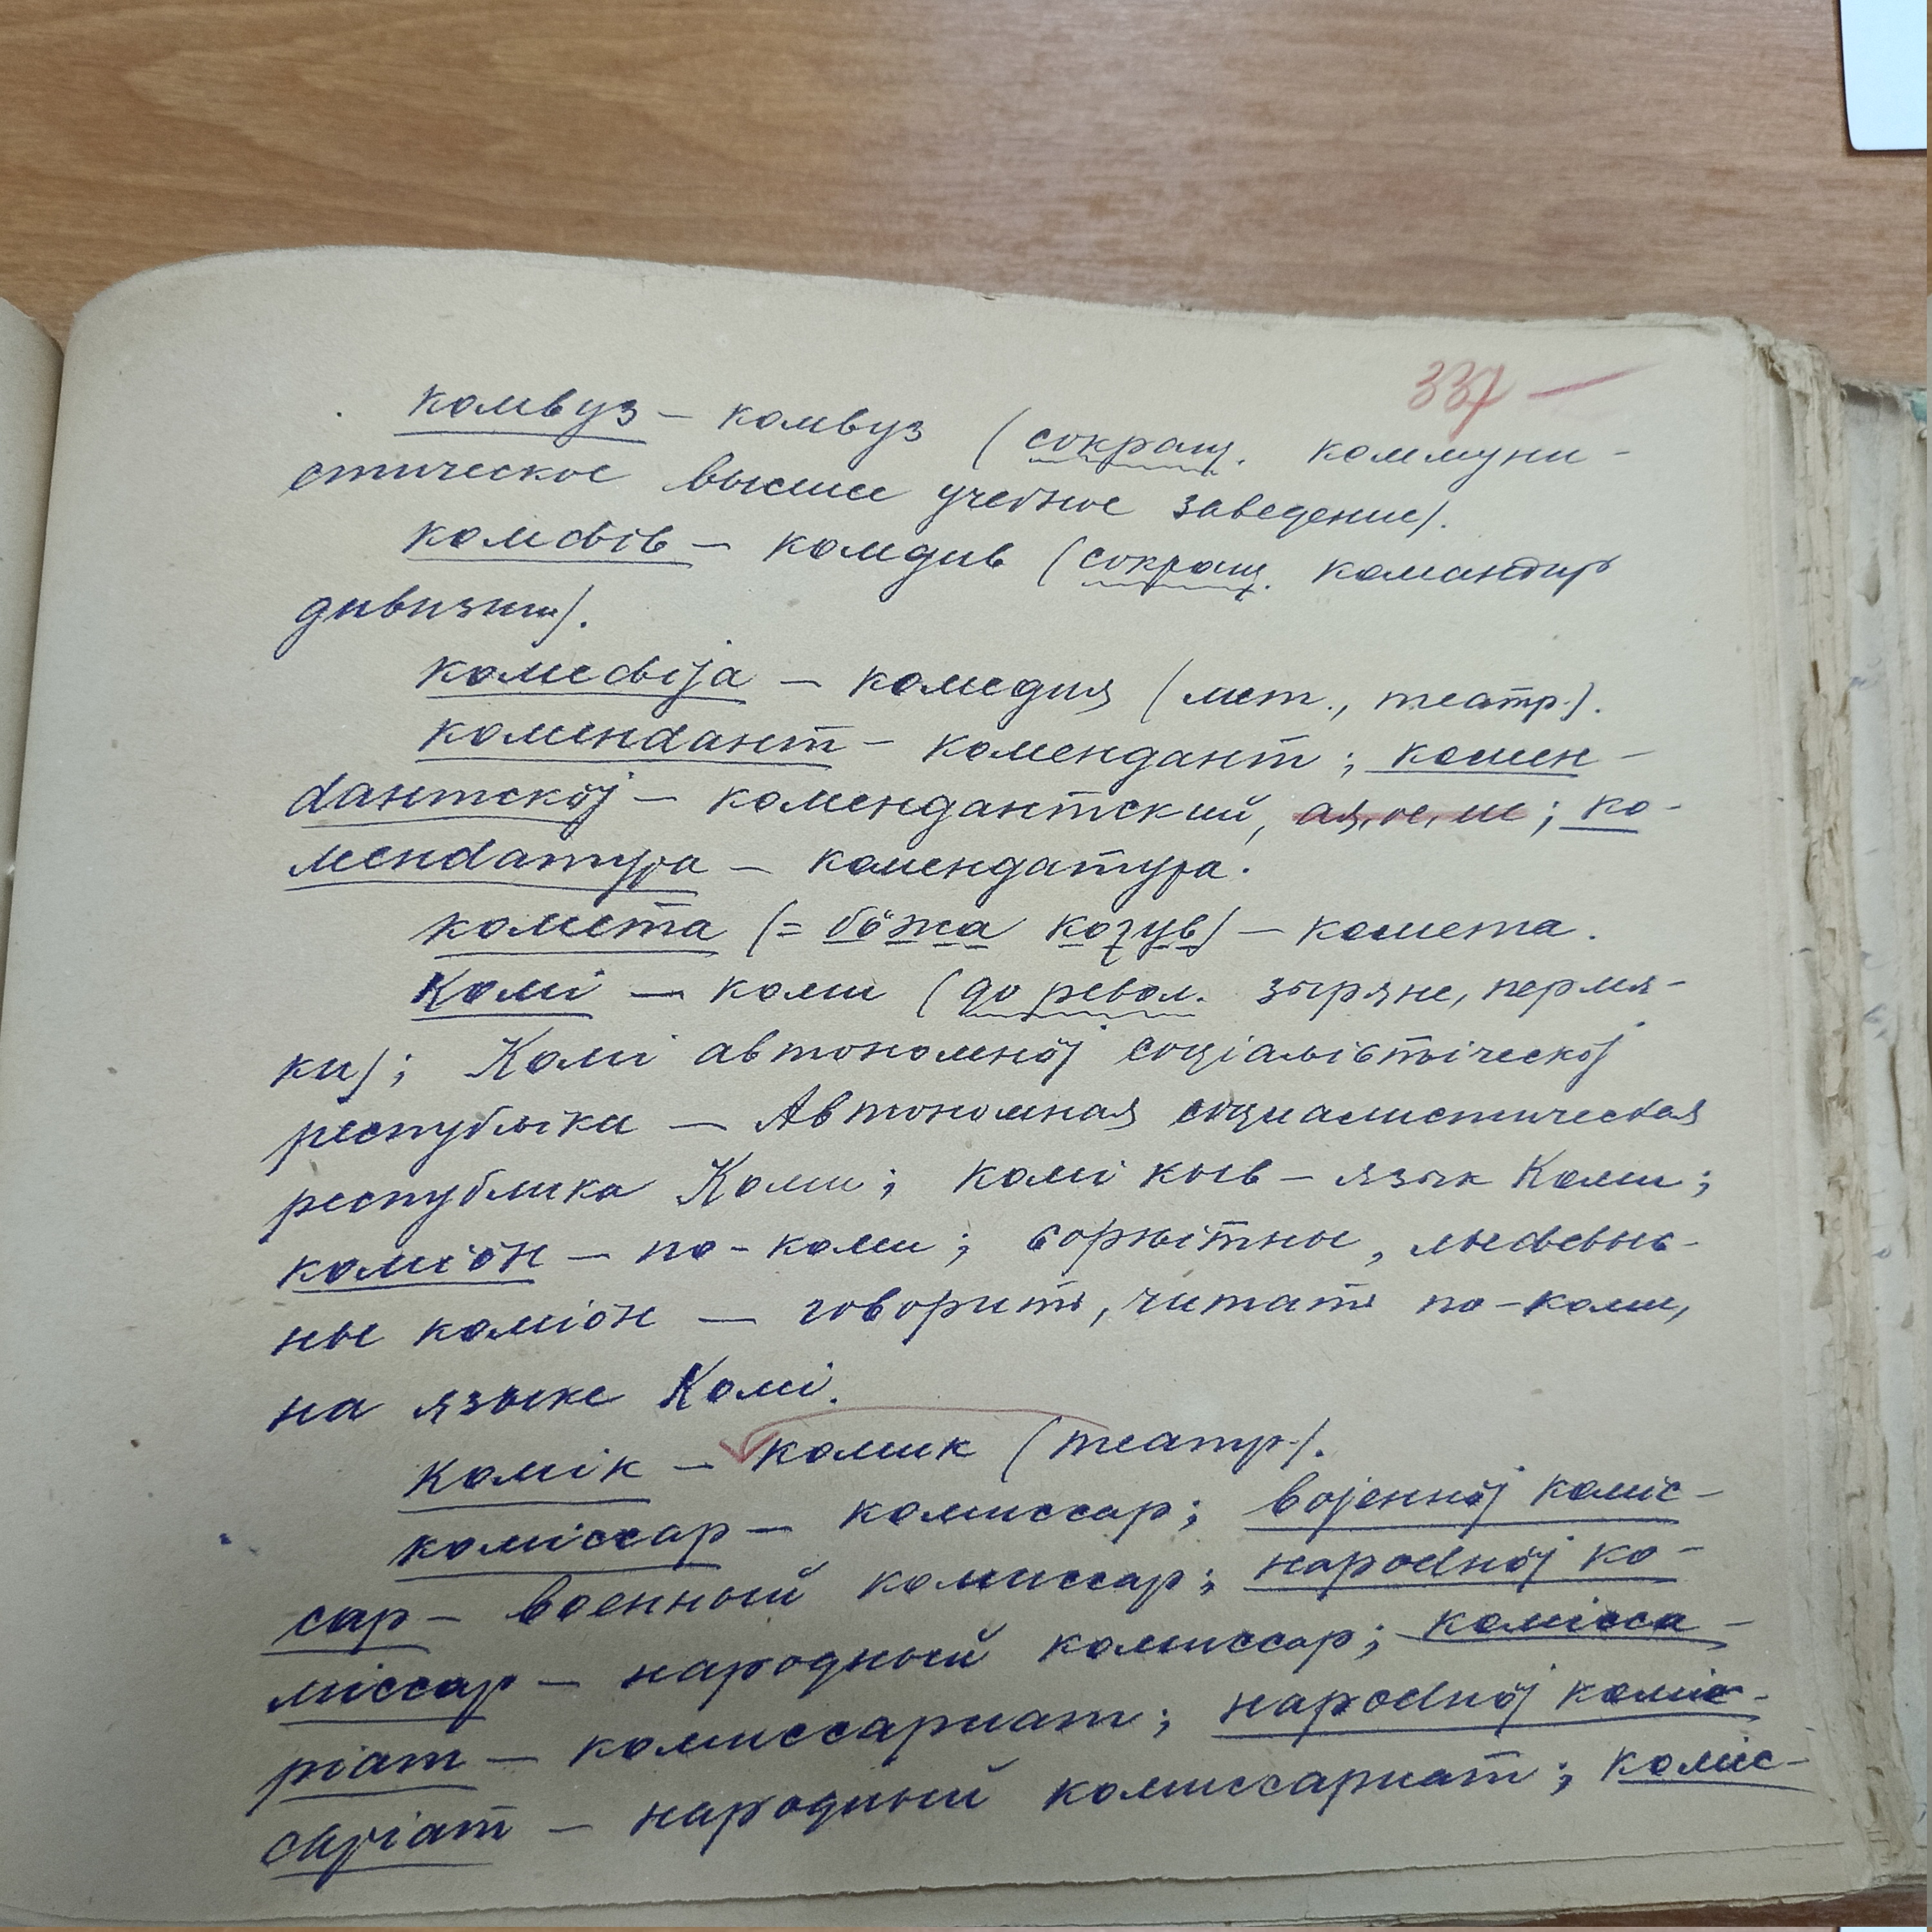 337 —
комвуз — комвуз (сокращ. коммуни-
стическое высшее учебное заведение).
комԃів — комдив (сокращ. командир
дивизии).
комеԃіја — комедия (лит., театр.).
комендант — комендант; комен-
дантскöј — комендантский, ая, ое, ие; ко-
мендатура — комендатура.
комета (= бöжа коԇув) — комета.
Комі — коми (до револ. зыряне, пермя-
ки); Комі автономнöј соціаԉістіческöј
республіка — Автономная социалистическая
республика Коми; комі кыв — язык Коми;
коміöн — по-коми; ԍорԋітны, лыԃԃыԍ-
ны коміöн — говорить, читать по-коми,
на языке Комі.
комік — комик (театр.).
коміссар — комиссар; војеннöј коміс-
сар — военный комиссар; народнöј ко-
міссар — народный комиссар; комісса-
ріат — комиссариат; народнöј коміс-
саріат — народный комиссариат; коміс-